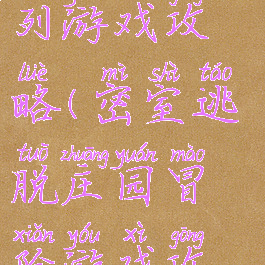 列游戏攻
lüè mì shì táo
略(密室逃
tuō zhuāng yuán mào
脱庄园冒
xiǎn yóu xì gōng
险游戏攻